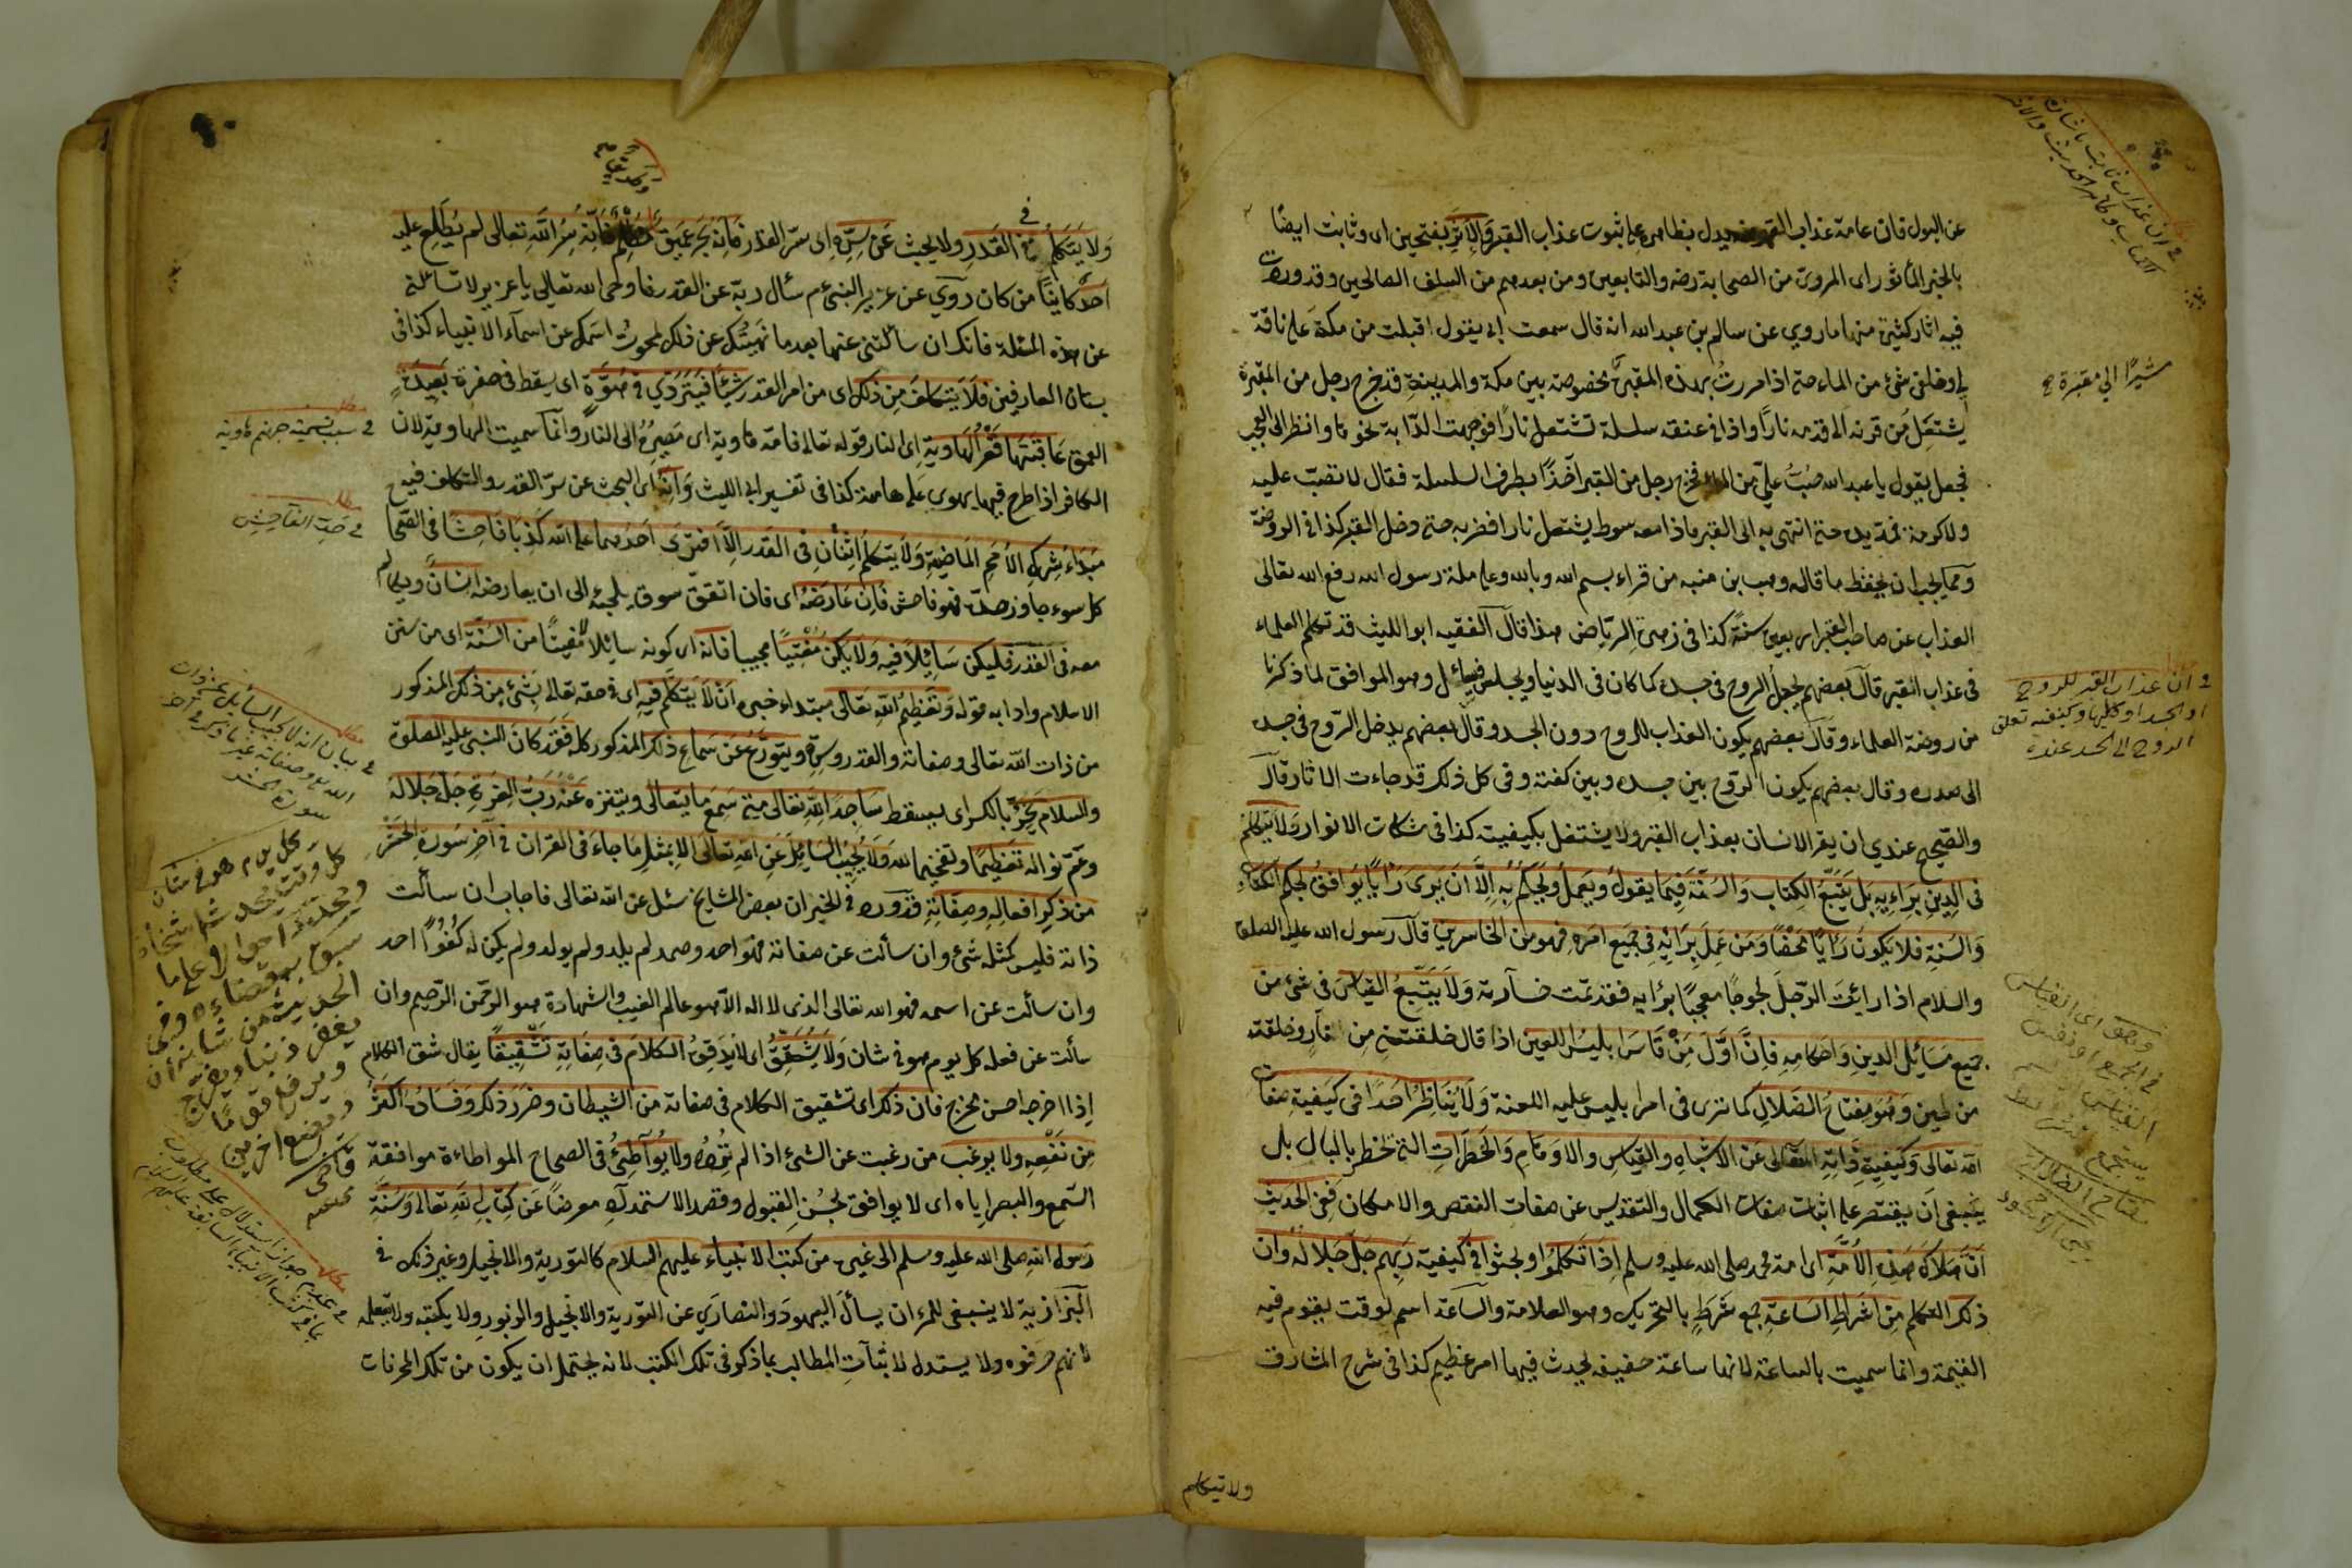 عن البول فان عامة عذاب القبر منه يدل بظاهره على ثبوت عذاب القبر والاثر بفتحتين اى وثابت ايضًا
بالخبر المأثور اى المروىّ من الصحابة رضه والتابعين ومن بعدهم من السلف الصالحين وقد ورد
فيه اثار كثيرة منها ما روي عن سالم بن عبد الله انه قال سمعت ابى يقول اقبلت من مكة على ناقة
لى وخلفى شئ من الماء حتى اذا مررت بهذه المقبرة مخصوصة بين مكة والمدينة قد خرج رجل من المقبرة
يشتعل من قرنه الى قدمه نارًا واذا فى عنقه سلسلة تشتعل نارًا فوجهت الدّابة نحوها وانظر الى العجب
فجعل يقول يا عبد الله صُبّ علىّ من الماء فخرج رجل من القبر آخذًا بطرف السلسلة فقال لا تصبّ عليه
ولا كرامة فمدّ يده حتى انتهى به الى القبر فاذا معه سوط يشتعل نارا فضربه حتى دخل القبر كذا فى الروضة
ومما يجب ان يحفظ ما قاله وهب بن منبه من قراء بسم الله وبالله وعلى ملة رسول الله رفع الله تعالى
العذاب عن صاحب القبر اربعين سنةً كذا فى زهرة الرّياض هذا قال الفقيه ابو الليث قد تكلم العلماء
فى عذاب القبر قال بعضهم يجعل الروح فى جسده كما كان فى الدنيا ويجلس فيسائل وهو الموافق لما ذكرنا
من روضة العلماء وقال بعضهم يكون العذاب للروح دون الجسد وقال بعضهم يدخل الرّوح فى جسده
الى صدره وقال بعضهم يكون الروح بين جسده وبين كفنه وفى كل ذلك قد جاءت الاثار قال
والصّحيح عندي ان يقر الانسان بعذاب القبر ولا يشتغل بكيفيته كذا فى مشكات الانوار ولا يتكلم
فى الدين برايه بل يتبع الكتاب والسنة فيما يقول ويعمل ويحكم به الا ان يرى رايًا يوافق لحكم الكتاب
والسنة فلا يكون رايًا محضًا ومن عمل برائه فى جميع امره فهو من الخاسرين قال رسول الله عليه الصلوة
والسلام اذا رائت الرّجل لجوجًا معجبًا برايه فقد تمّت خسارته ولا يتّبع القياس فى شئ من
جميع مسائل الدين واحكامه فان اوّل من قاس ابليس اللعين اذا قال خلقتنى من نار وخلقته
من طين وهو مفتاح الضلال كما ترى فى امر ابليس عليه اللعنة ولا يناظر احدًا فى كيفية صفات
الله تعالى وكيفية ذاته المتعالى عن الاشباه والقياس والاوهام والخطرات التى تخطر بالبال بل
ينبغى ان يقتصر على اثبات صفات الكمال والتقديس عن صفات النقص والامكان ففى الحديث
ان هلاك هذه الامّة اى امة محمد صلى الله عليه وسلم اذا تكلموا وبحثوا فى كيفية ربهم جلّ جلاله وان
ذلك التكلم من اشراط الساعة جمع شرط بالتحريك وهو العلامة والساعة اسم لوقت يقوم فيه
القيمة وانما سميت بالساعة لانها ساعة خفيفة يحدث فيها امر عظيم كذا فى شرح المشارق
ولا يتكلم
مشيرًا الى مقبرة
فى ان عذاب القبر للروح
او الجسد او كليهما وكيفية تعلق
الروح الى الجسد عنده
ولا يتكلم فى القدر ولا يبحث عن سرّه اى سرّ القدر فانه بحر عميق فانه سرّ الله تعالى لم يطلع عليه
احدًا كاينًا من كان روي عن عزير النبى م سأل ربّه عن القدر فاوحى الله تعالى يا عزير لا تسألنى
عن هذه المسئلة فانك ان سألتنى عنها بعد ما نهيتك عن ذلك لمحوت اسمك عن اسماء الانبياء كذا فى
بستان العارفين فلا يتكلف من ذلك اى من امر القدر شيئًا فيتردّي فى هوّة اى يسقط فى حفرة بعيدة
العمق عاقبتها قعر الهاوية اى النار قوله تعالى فامّه هاوية اى مصيره الى النار وانما سميت الهاوية لان
الكافر اذا طرح فيها يهوى على هامته كذا فى تفسير ابى الليث وانه اى البحث عن سرّ القدر والتكلف فيه
مبداء شرك الامم الماضية ولا يتكلم اثنان فى القدر الّا افترى احدهما على الله كذبًا فاحشًا فى الصّحاح
كل سوء جاوز حدّه فهو فاحش فان عارضه اى فان اتفق سوق يلجئه الى ان يعارضه انسان ويكالم
معه فى القدر فليكن سائلًا فيه ولا يكن مفتيًا مجيبا فانه اى كونه سايلًا لا مفتيًا من السنّة اى من سنن
الاسلام وادابه قوله وتعظيم الله تعالى مبتداء خبره ان لا يتكلم فيه اى فى حقه تعالى بشئ من ذلك المذكور
من ذات الله تعالى وصفاته والقدر وسرّه ويتورّع عن سماع ذلك المذكور كله فقد كان النبى عليه الصلوة
والسلام يخرّ بالكسر اى يسقط ساجدا لله تعالى متى سمع ما يتعالى ويتنزه عنه رب العزة جل جلاله
وعمّ نواله تعظيمًا وتفخيما لله ولا يجيب السائل عن الله تعالى الا بمثل ما جاء فى القران فى آخر سورة الحشر
من ذكر افعاله وصفاته فقد ورد فى الخبر ان بعض المشايخ سئل عن الله تعالى فاجاب ان سألت
ذاته فليس كمثله شئ وان سألت عن صفاته فهو احد وصمد لم يلد ولم يولد ولم يكن له كفوًا احد
وان سألت عن اسمه فهو الله تعالى الذى لا اله الّا هو عالم الغيب والشهادة هو الرحمن الرّحيم وان
سألت عن فعله كل يوم هو فى شان ولا يشقّق اى لا يدقّق الكلام فى صفاته تشقيقًا يقال شق الكلام
اذا اخرجه احسن مخرج فان ذلك اى تشقيق الكلام فى صفاته من الشيطان وضرر ذلك وفساده اكثر
من نفعه ولا يرغب من رغبت عن الشئ اذا لم ترده ولا يواطئ فى الصحاح المواطاءة موافقة
السّمع والبصر اياه اى لا يوافق بحسن القبول وقصد الاستمداد معرضًا عن كتاب الله تعالى وسنّة
رسول الله صلى الله عليه وسلم الى غيره من كتب الانبياء عليهم السلام كالتورية والانجيل وغير ذلك فى
البزازية لا ينبغى للمرء ان يسأل اليهود والنصاري عن التورية والانجيل والزبور ولا يكتبه ولا يتعلمه
لانهم حرفوه ولا يستدل لاثبات المطالب بما ذكر فى تلك الكتب لانه يحتمل ان يكون من تلك المحرفات
فى سبب تسمية جهنم هاوية
فى حدّ الفاحش